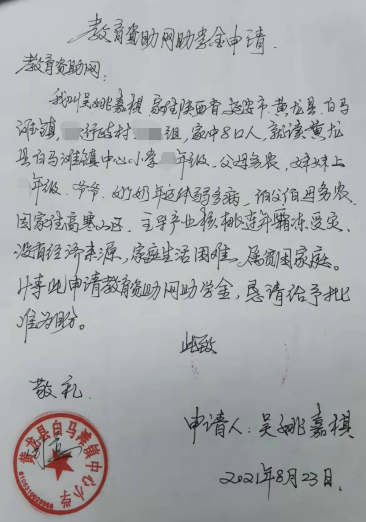 教育资助网助学金申请.
教育资助网:
我叫吴姚嘉祺.家住陕西省.延安市.黄龙县.白马
滩镇.行政村组,家中8口人,就读:黄龙
县白马滩镇中心小学年级.父母务农,妹妹上
年级.爷爷.奶奶年迈体弱多病,伯父伯母务农.
因家住高寒山区.主导产业核桃连年霜冻受灾.
没有经济来源,家庭生活困难.属贫困家庭。
特此申请教育资助网助学金,恳请给予批
准为盼。
此致
敬礼
申请人:吴姚嘉祺
2021年8月23日.
黄龙县白马滩镇中心小学